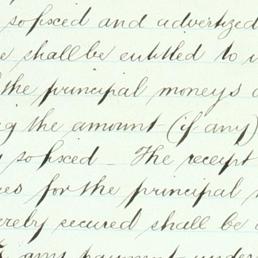 so fixed and advertized
shall be entitled to
the principal moneys
the amount (if any)
so fixed - The receipt
for the principal
secured shall be
any payment under